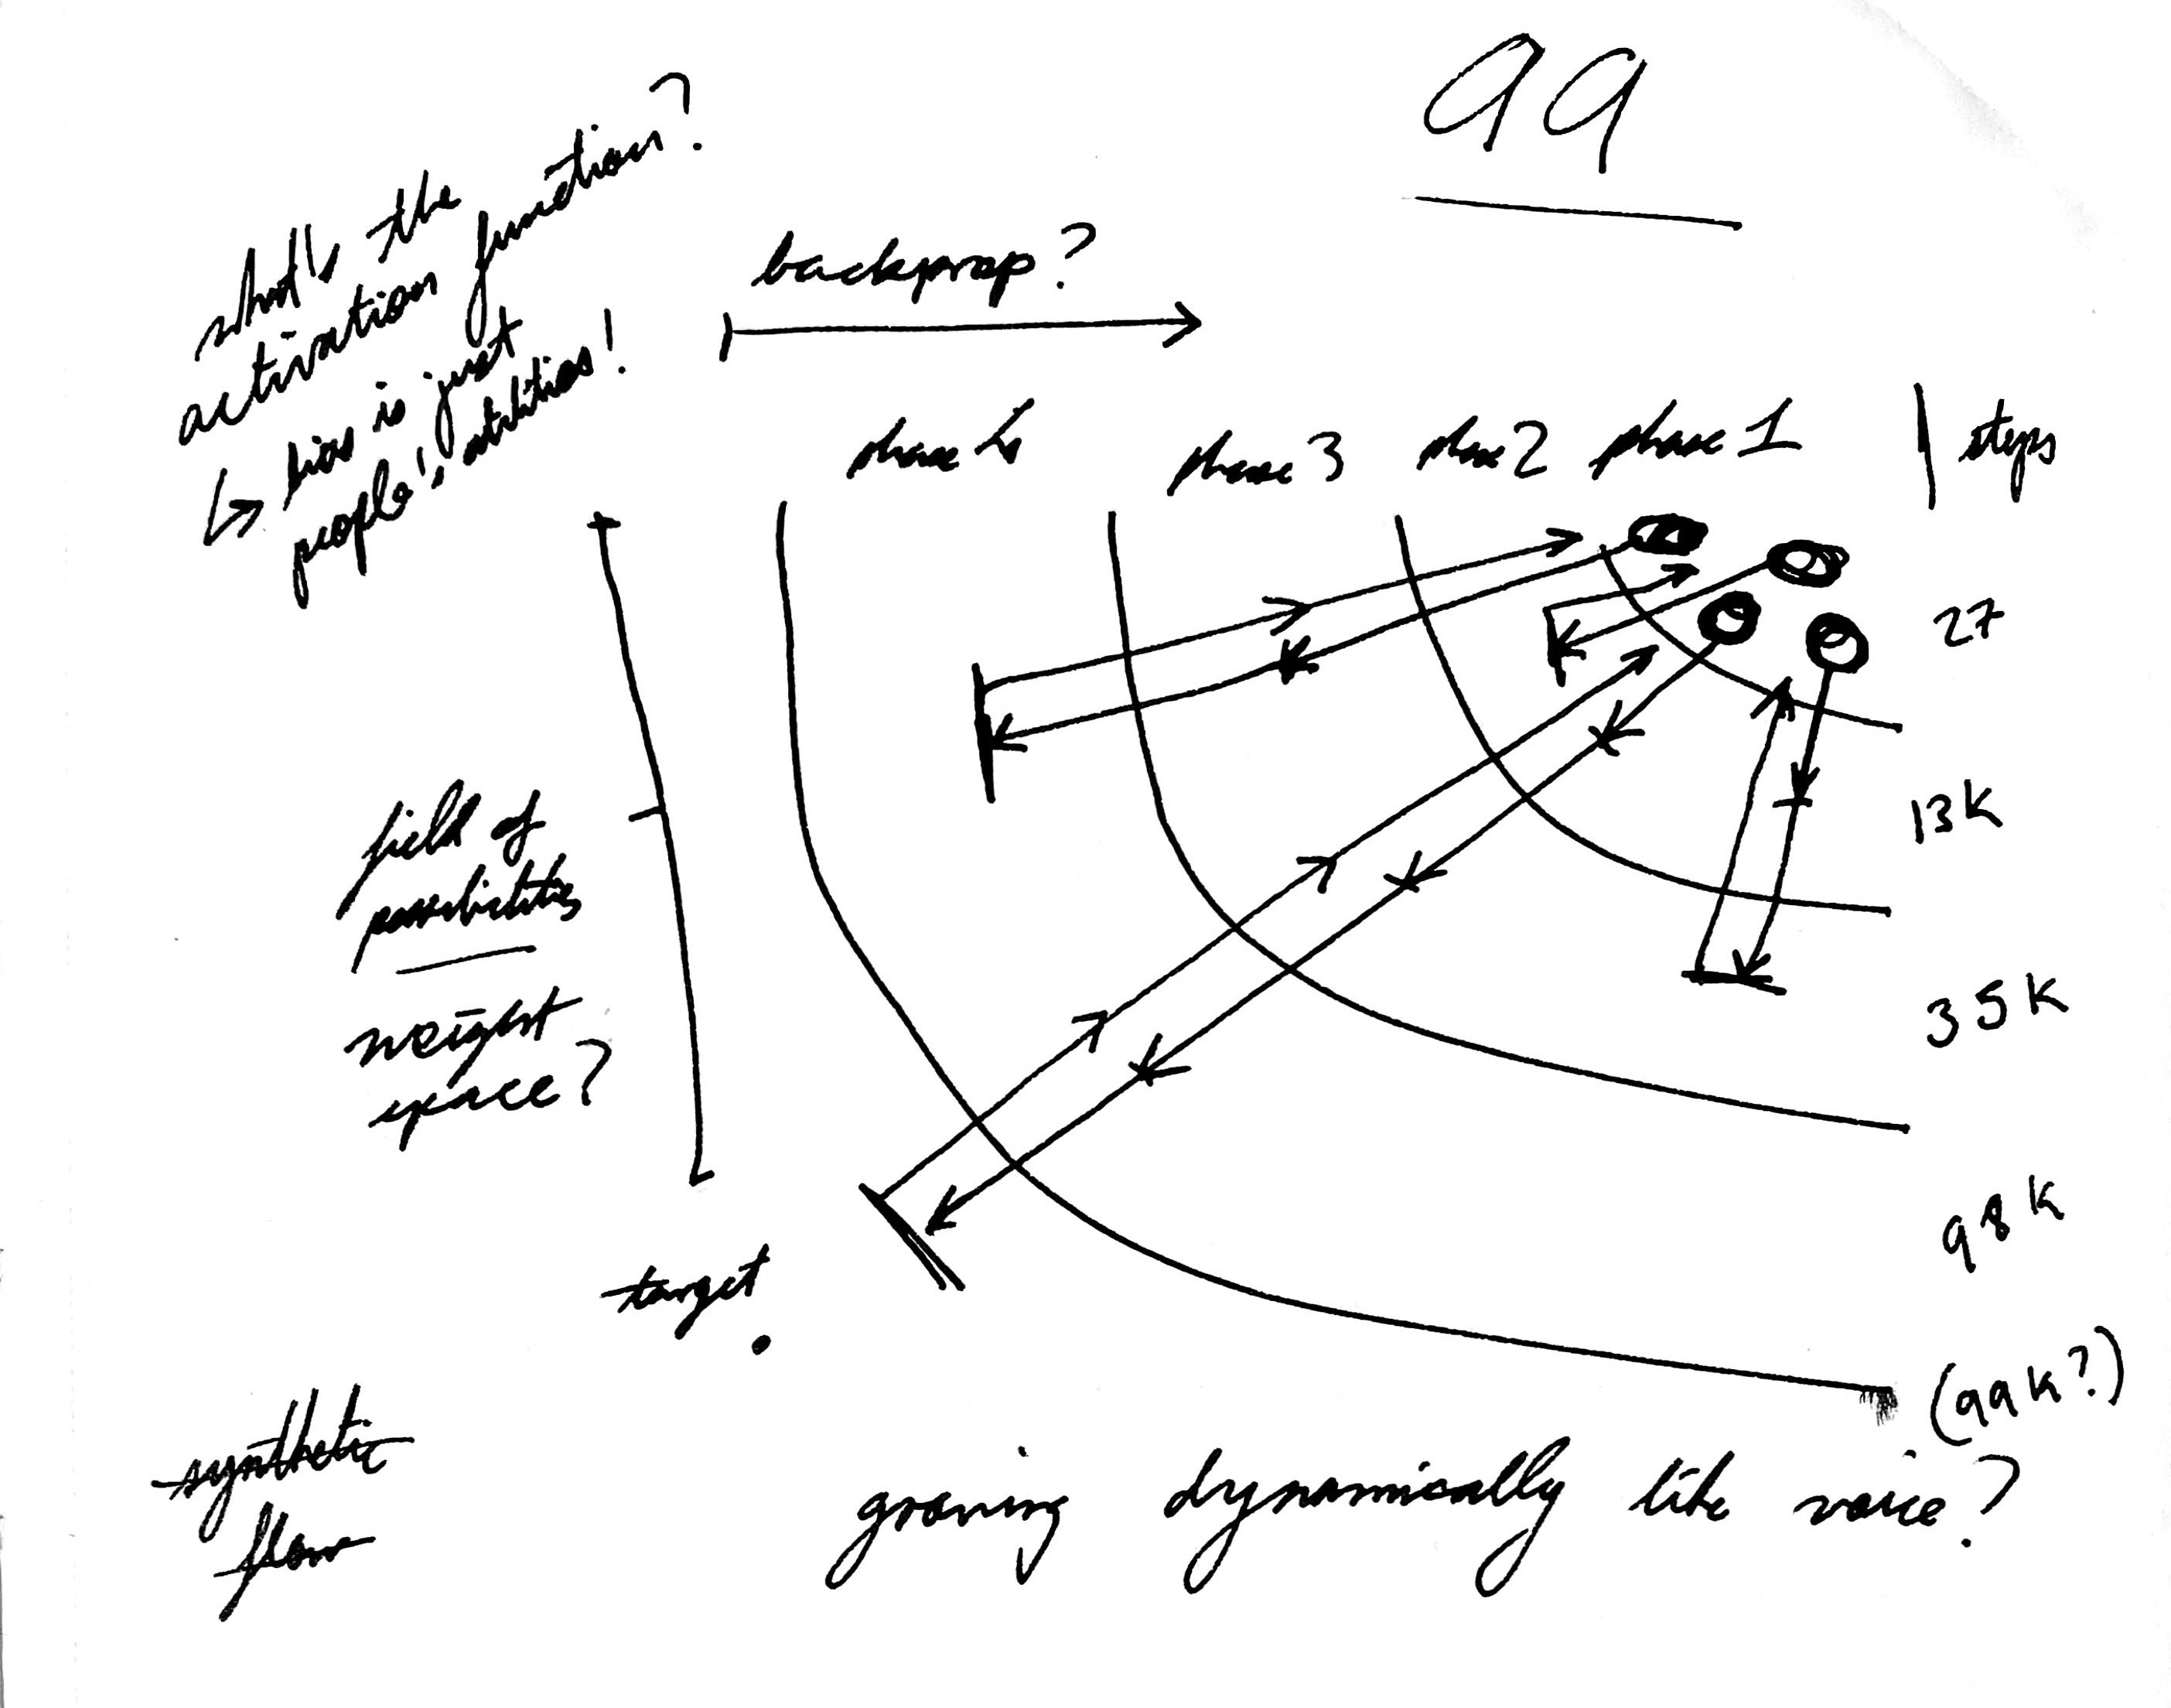 99
what's the
activation function?
↳ bias is just
people's
backprop?
phase 4 phase 3 phase 2 phase 1 | steps
27
13K
35K
98K
(99K?)
field of
possibilities
weight
space?
target
synthetic
flow
growing dynamically like voice?